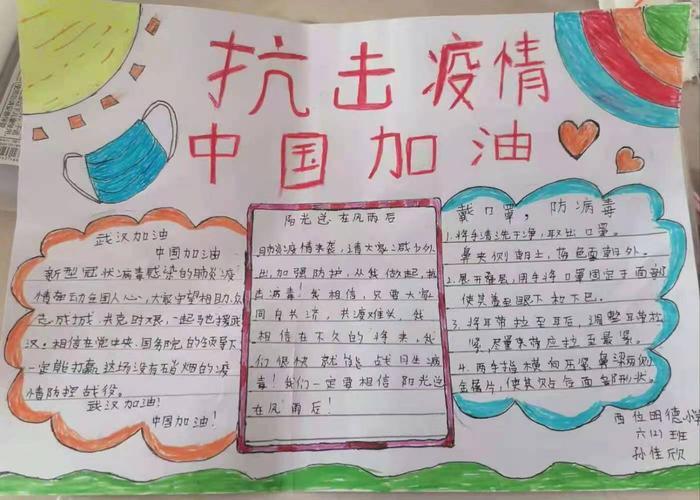 抗击疫情
中国加油
武汉加油
中国加油
新型冠状病毒感染的肺炎疫
情牵动全国人心,大家守望相助,众
志成城,共克时艰,一起驰援武
汉。相信在党中央、国务院的领导下
一定能打赢这场没有硝烟的疫
情防控战役。
武汉加油!
中国加油!
阳光总在风雨后
肺炎疫情来袭,请大家减少外
出,加强防护,从我做起,抗
击病毒!我相信,只要大家
同舟共济,共渡难关,我
相信在不久的将来,我
们很快就能战胜病
毒!我们一定要相信阳光总
在风雨后!
戴口罩,防病毒
1.将手清洗干净,取出口罩。
鼻夹侧朝上,深色面朝外。
2.展开褶层,用手将口罩固定于面部
使其覆盖眼下和下巴。
3.将耳带拉至耳后,调整耳带松
紧,尽量其带应拉至最紧。
4.两手指横向压紧鼻梁两侧
金属片,使其贴合面部形状。
西位明德小学
六(2)班
孙佳欣